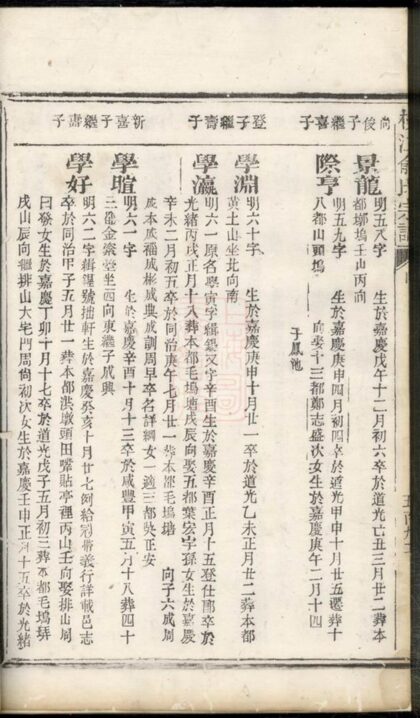 尚俊子繼喜子
登子繼壽子
新喜子繼壽子
景龍
明五八字 生於嘉慶戊午十二月初六卒於道光己丑三月廿一葬本
都塚塢壬山丙向
際亨
明五九字 生於嘉慶庚申四月初四卒於道光甲申十月廿五遷葬十
八都山頭塢 向娶十三都鄭志盛次女生於嘉慶庚午二月十四
子鳳池
學淵
明六十字 生於嘉慶庚申十月廿一卒於道光乙未正月廿二葬本都
黄土山坐北向南
學瀛
明六一原名學寅字緝熙又字辛酉生於嘉慶辛酉正月十五登仕郎卒於
光緒丙戌正月十八葬本都毛塢塘戌辰向娶五都葉宏宇孫女生於嘉慶
辛未二月初五卒於同治庚午七月廿一葬本都毛塢塘 向子六咸周
咸本咸福咸彬咸典咸訓周早卒名詳綱女一適三都吳正安
學瑄
明六一字 生於嘉慶辛酉十月十三卒於咸豐甲寅五月十八葬四十
三都金業堂坐西向東繼子咸興
學好
明六二字緝謹號拙軒生於嘉慶癸亥十月廿七例給冠帶義行詳載邑志
卒於同治甲子五月廿一葬本都洪墩頭田塍貼亭裡丙山壬向娶排山周
曰發女生於嘉慶丁卯十月十七卒於道光戊子五月初三葬本都毛塢塝
戌山辰向繼排山大宅門周尚初次女生於嘉慶壬申正月十五卒於光緒